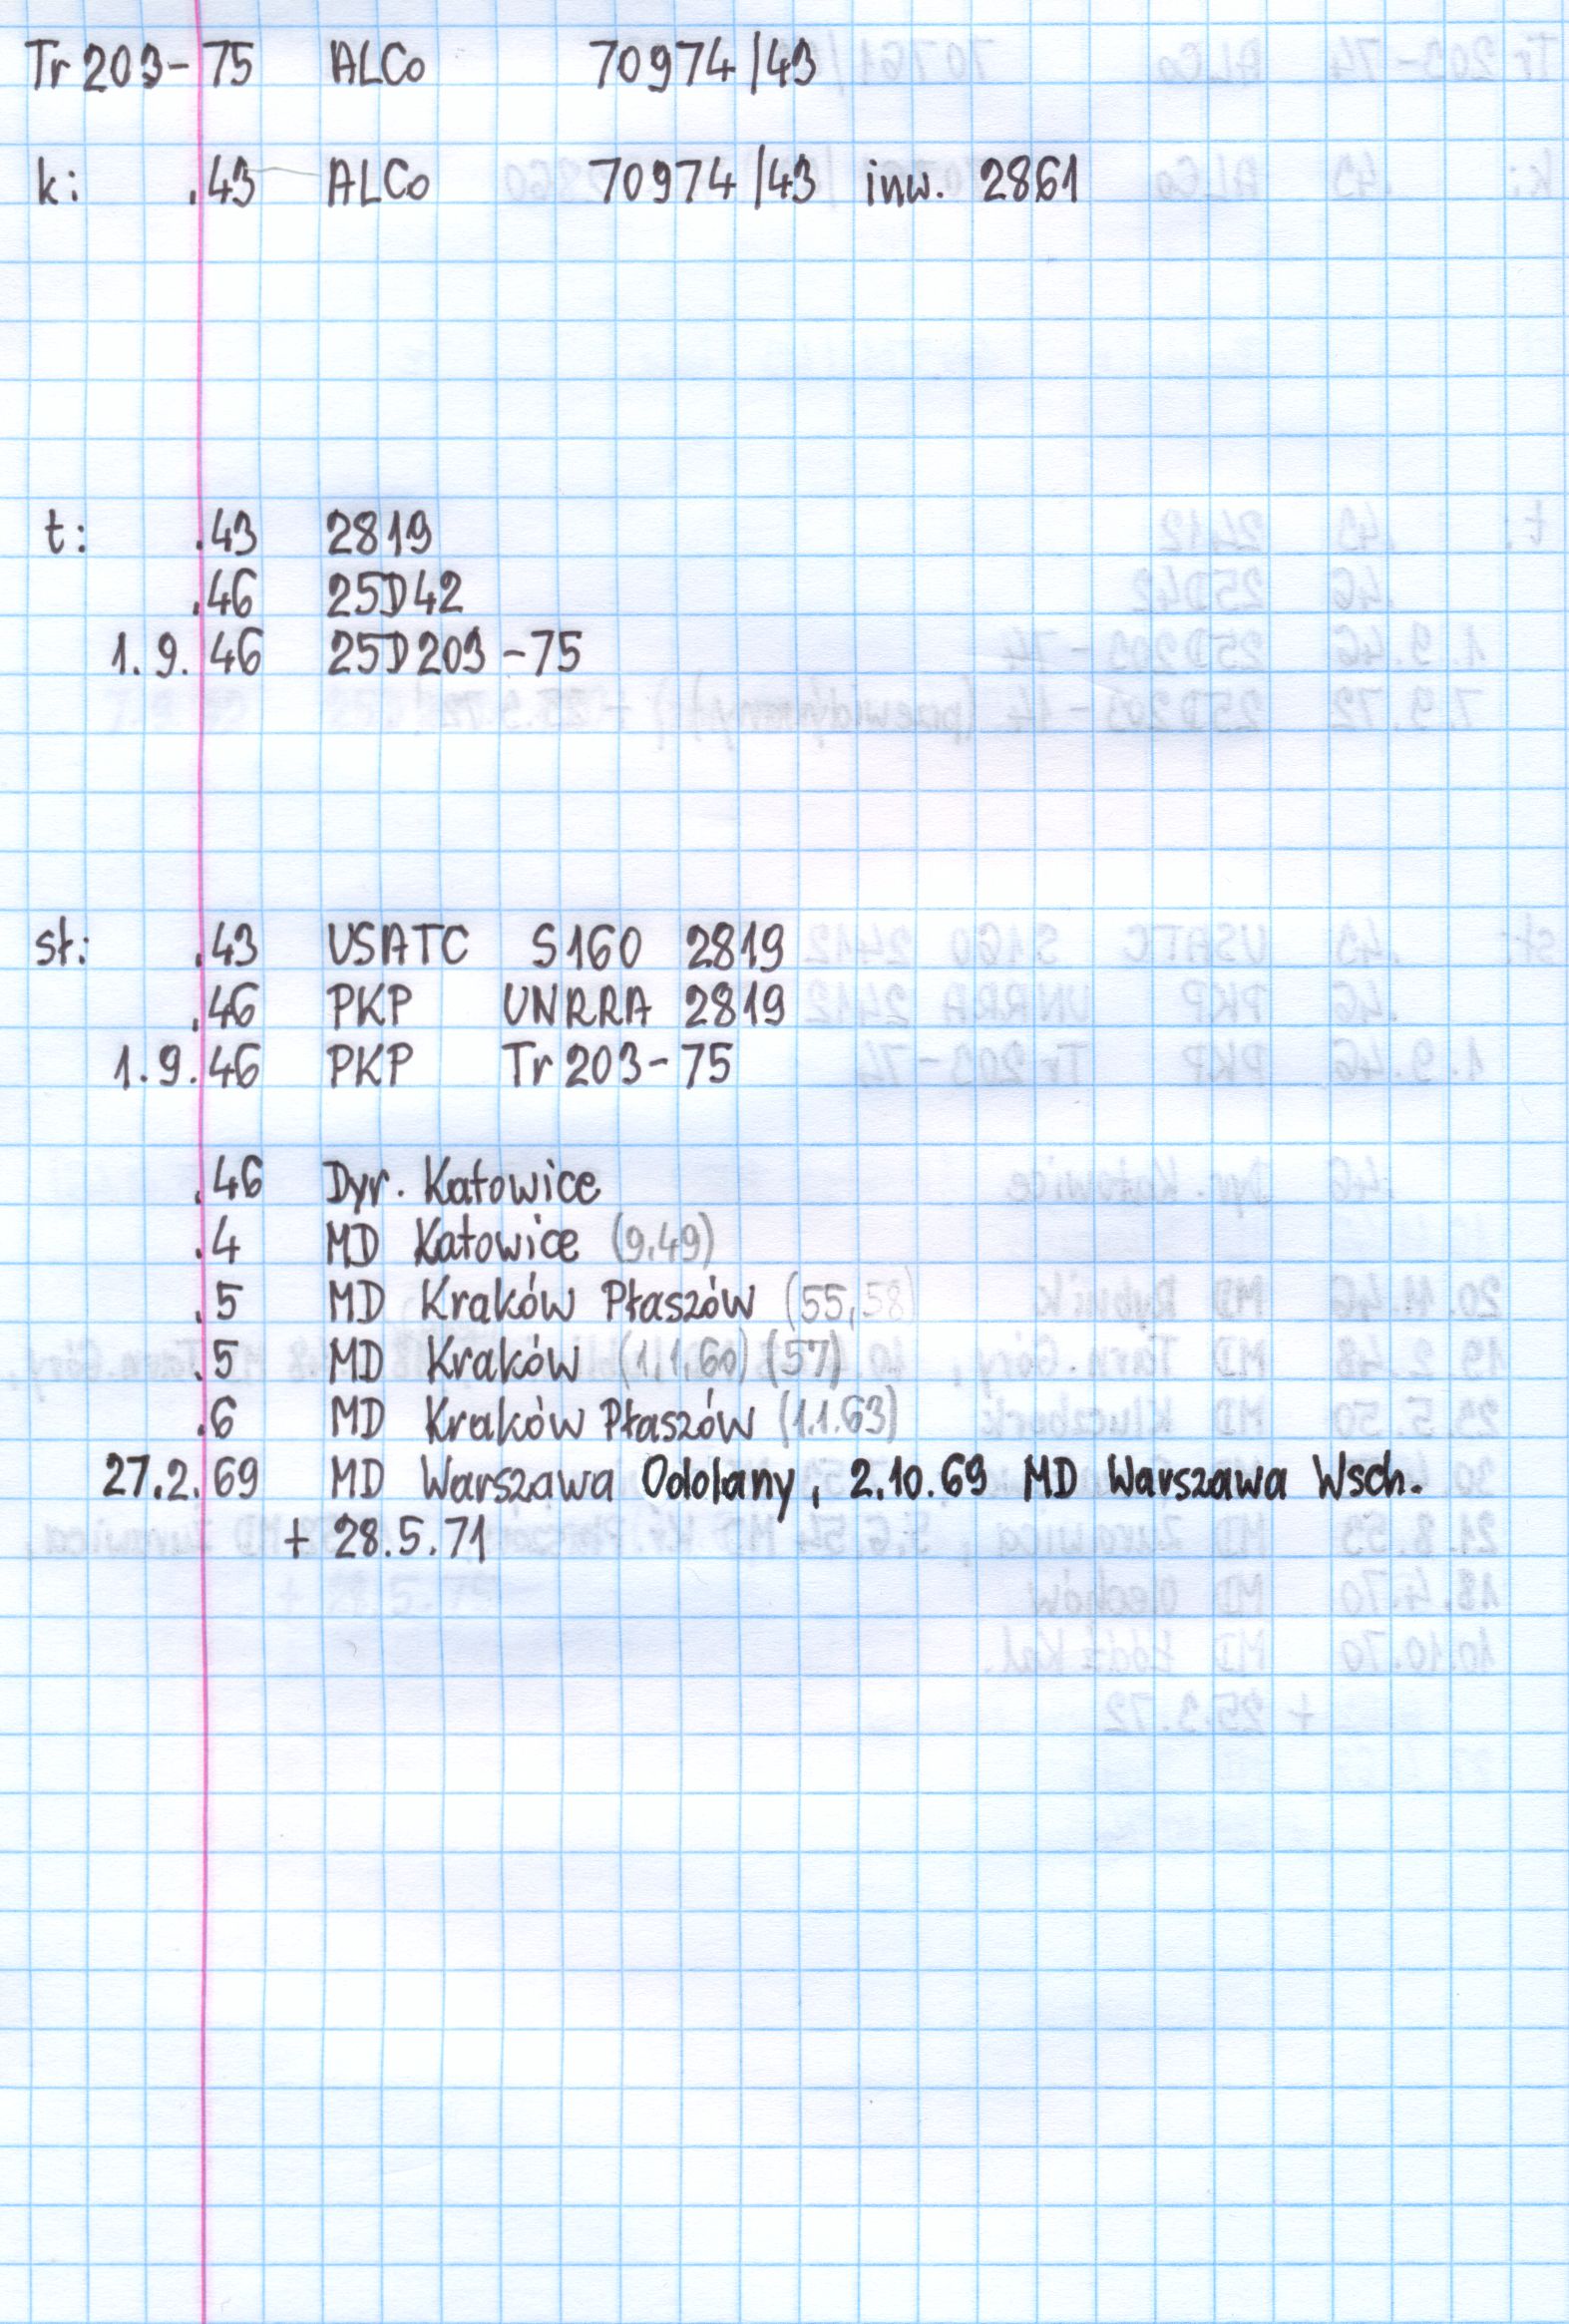 Tr 203-75 ALCo 70974/43
k: .43 ALCo 70974/43 inw. 2861
t: .43 2819
.46 25D42
1.9.46 25D203-75
st: .43 USATC S160 2819
.46 PKP UNRRA 2819
1.9.46 PKP Tr 203-75
.46 Dyr. Katowice
.4 MD Katowice (9.49)
.5 MD Kraków Płaszów (55,58)
.5 MD Kraków (1.1.60) (57)
.6 MD Kraków Płaszów (1.1.63)
27.2.69 MD Warszawa Odolany, 2.10.69 MD Warszawa Wsch.
+ 28.5.71